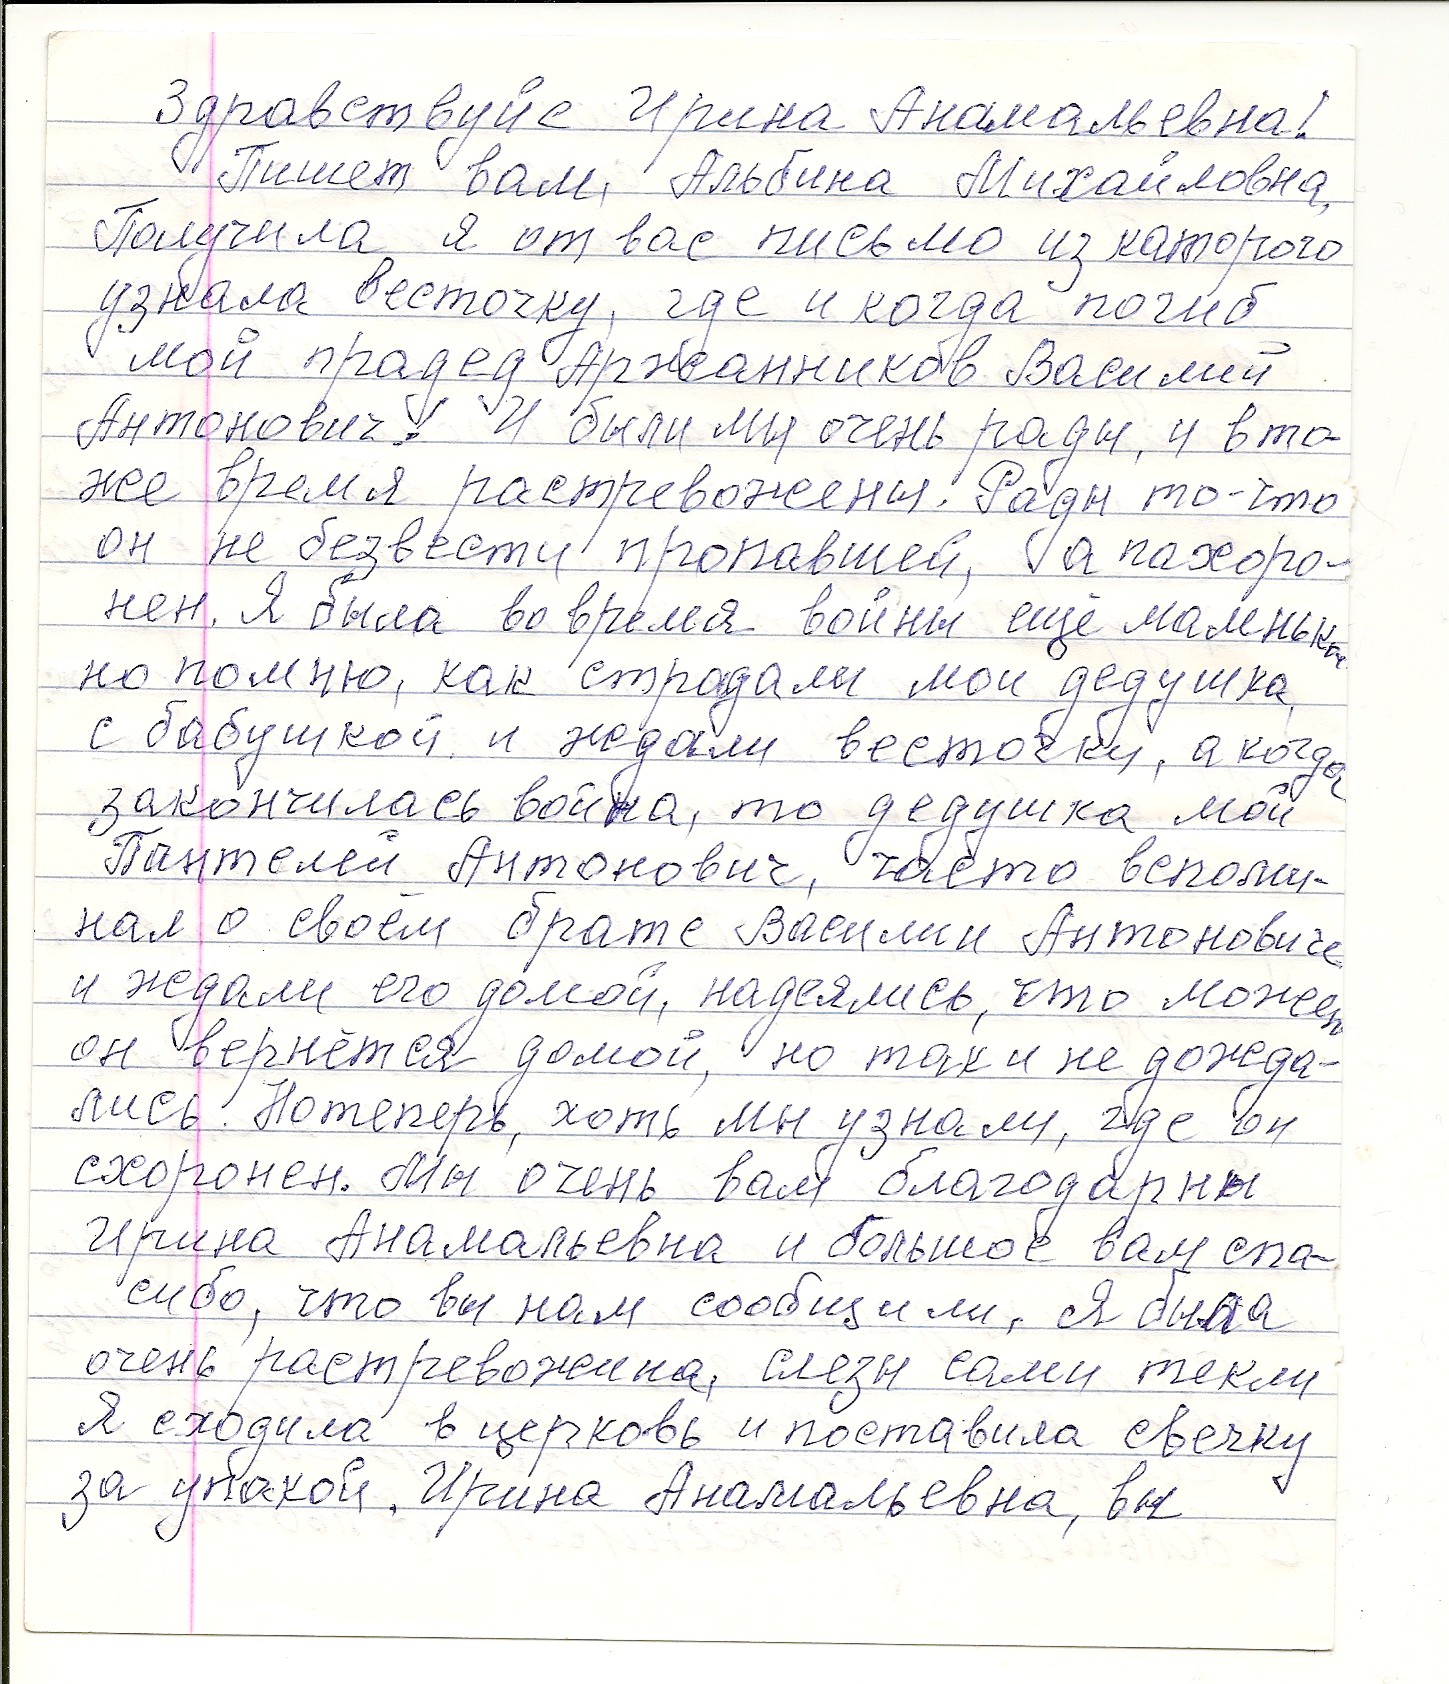 Здравствуйс Ирина Анамальевна!
Пишет вам, Альбина Михайловна,
Получила я от вас письмо из каторого
узнала весточку, где и когда погиб
мой прадед Аржанников Василий
Антонович! И были мы очень рады, и в то-
же время растревожены. Рады то-что
он не безвести пропавшей, а пахоро-
нен. Я была во время войны ещё маленькая
но помню, как страдали мои дедушка,
с бабушкой и ждали весточки, а когда
закончилась война, то дедушка мой
Пантелей Антонович, часто вспоми-
нал о своём брате Василии Антоновиче
и ждали его домой, надеялись, что может
он вернётся домой, но так и не дожда-
лись. Но теперь, хоть мы узнали, где он
схоронен. Мы очень вам благодарны
Ирина Анамальевна и большое вам спа-
сибо, что вы нам сообщили. Я была
очень растревожина, слезы сами текли
Я сходила в церковь и поставила свечку
за упакой. Ирина Анамальевна, вы